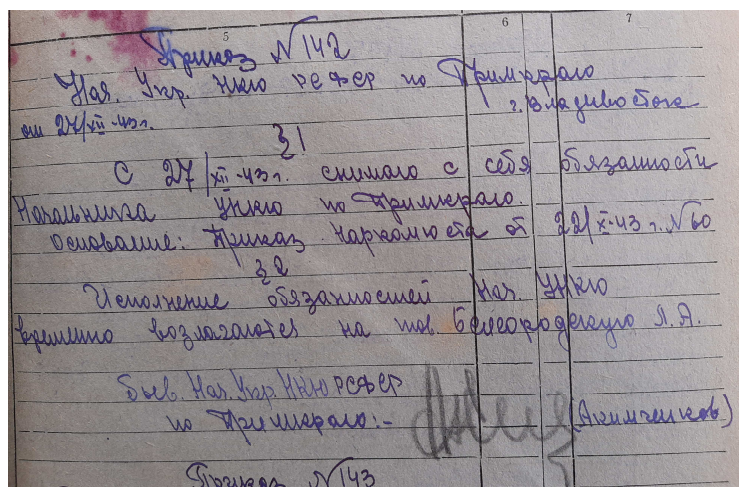 5 6 7
Приказ №142
Нач. Упр. НКЮ РСФСР по Примкраю
г. Владивосток
от 27/XII-43 г.
§1
С 27/XII-43 г. снимаю с себя обязанности
Начальника УНКЮ по Примкраю.
Основание: Приказ Наркомюста от 22/XI-43 г. №60
§2
Исполнение обязанностей Нач. УНКЮ
временно возлагаются на тов. Белгородскую Л.А.
Быв. Нач. Упр. НКЮ РСФСР
по Примкраю:- (Акимченков)
Приказ №143